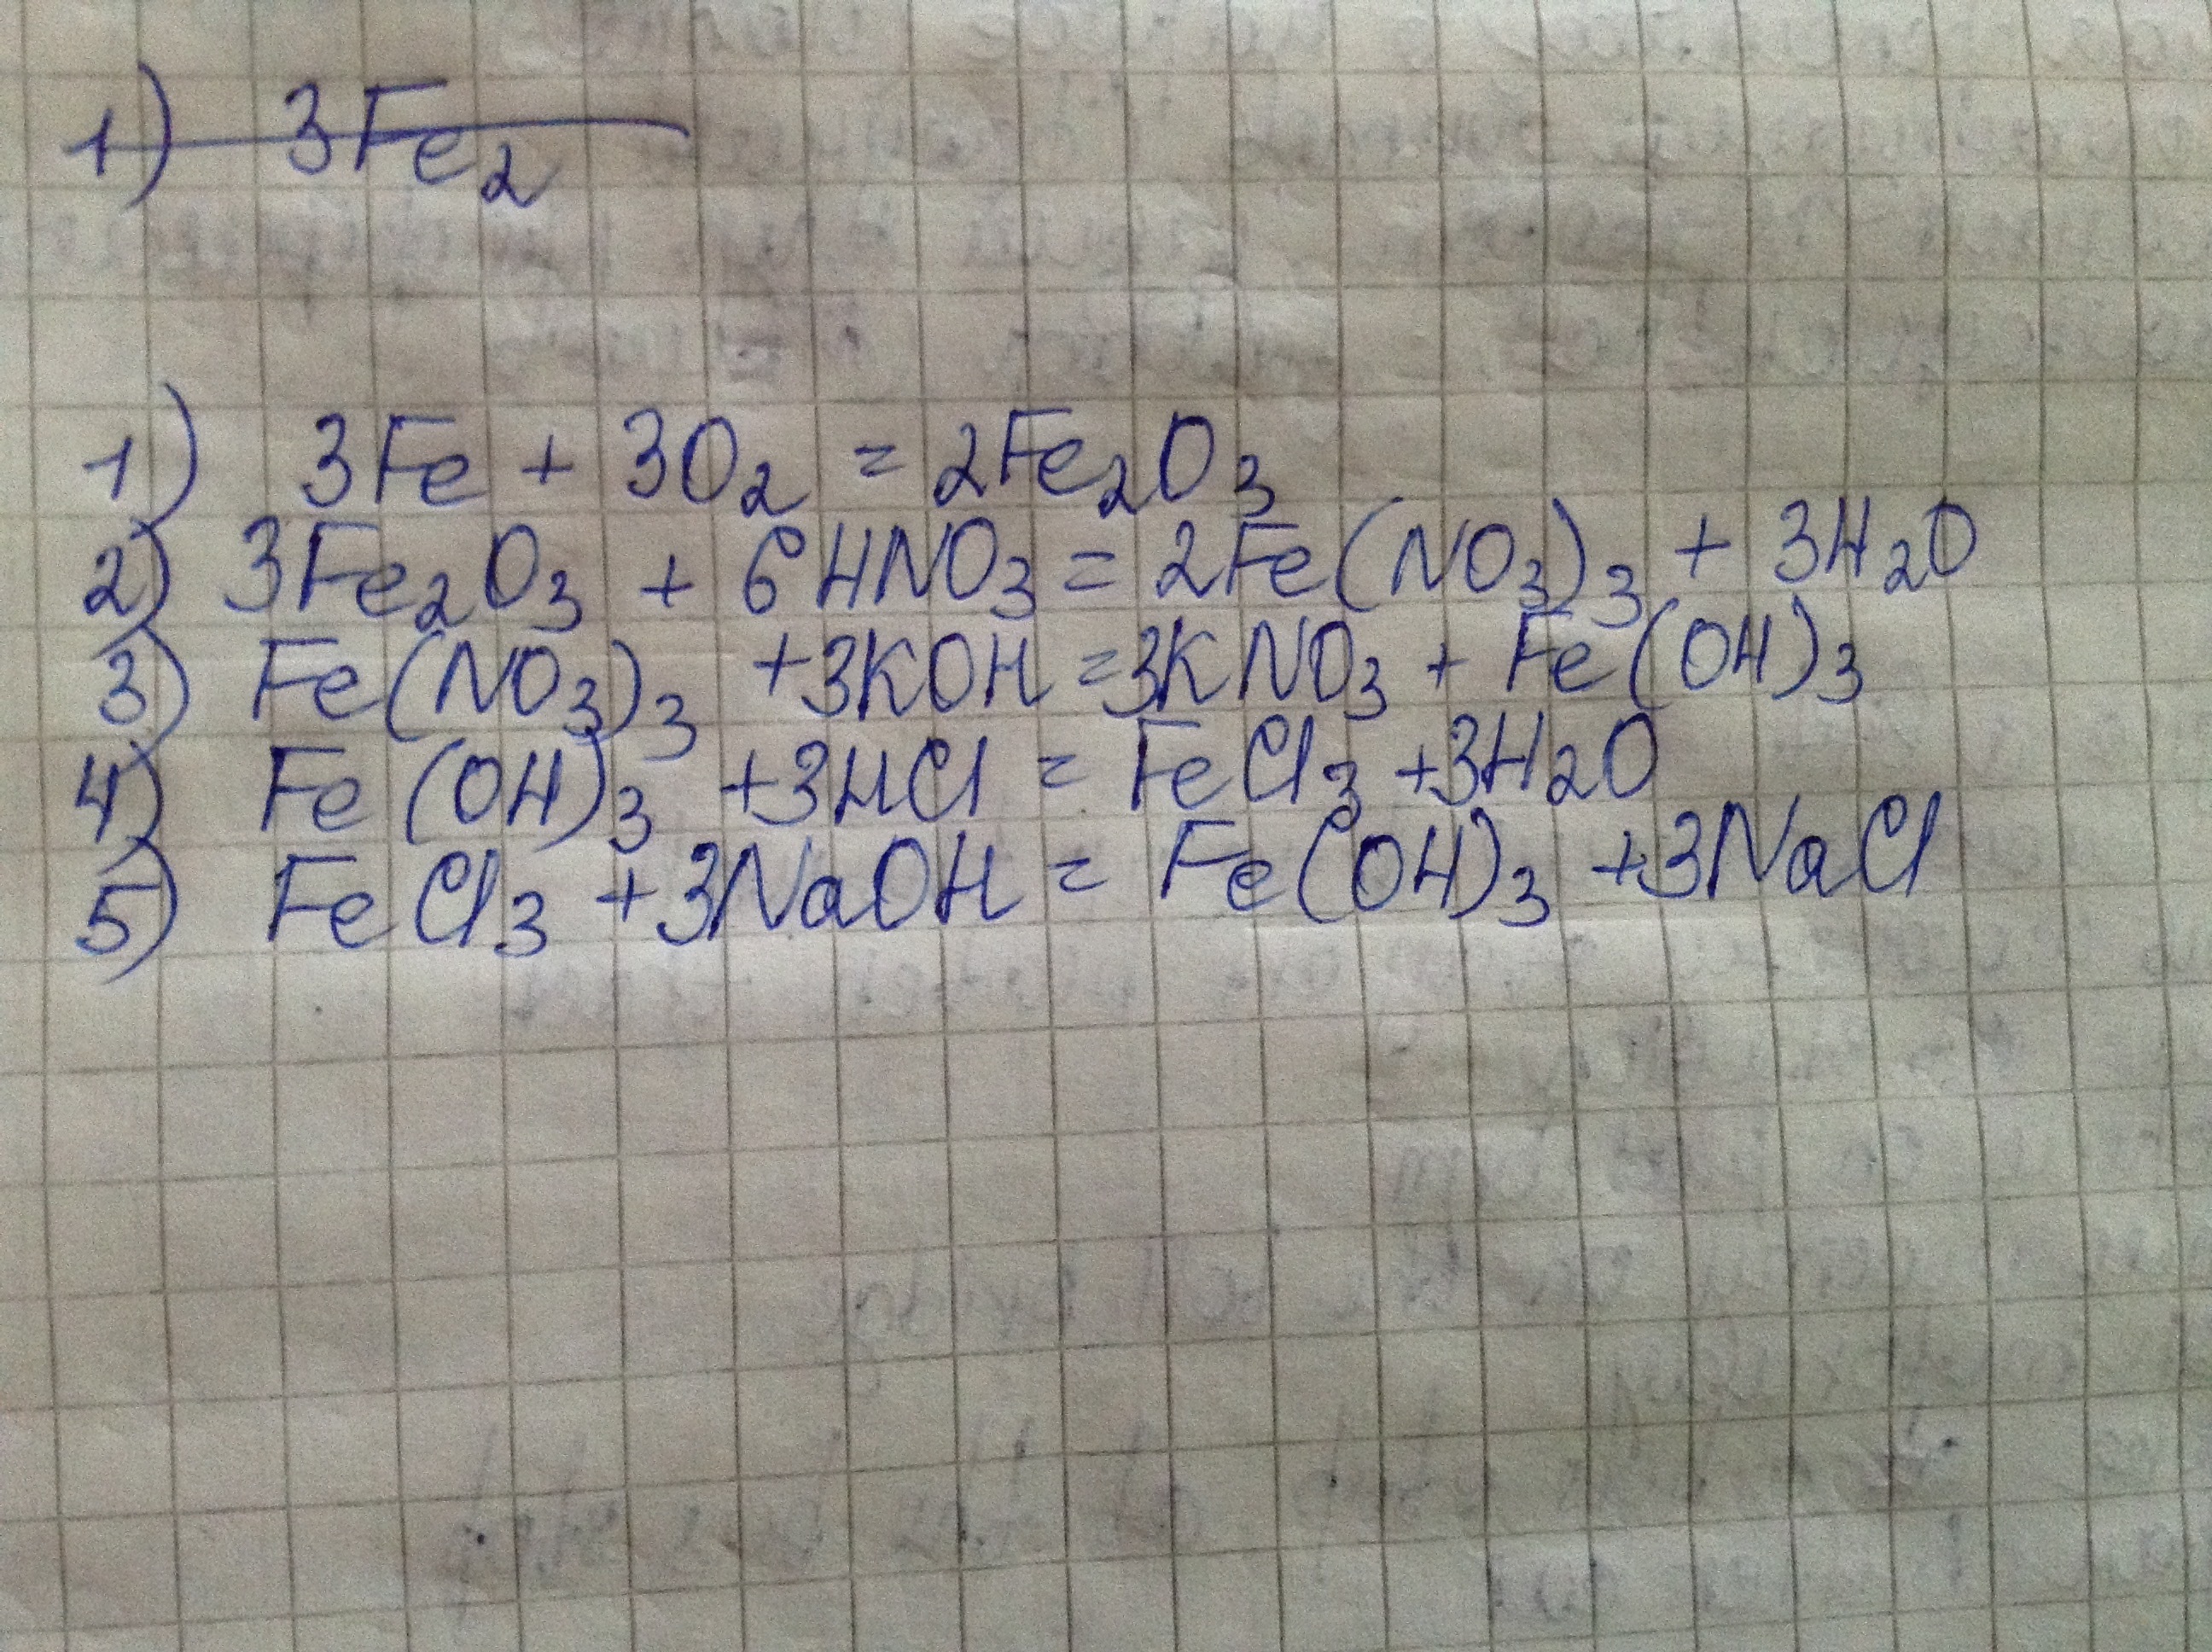 1) 3Fe₂
1) 3Fe + 3O₂ = 2Fe₂O₃
2) 3Fe₂O₃ + 6HNO₃ = 2Fe(NO₃)₃ + 3H₂O
3) Fe(NO₃)₃ +3KOH =3KNO₃ + Fe(OH)₃
4) Fe(OH)₃ +3HCl = FeCl₃ +3H₂O
5) FeCl₃ +3NaOH = Fe(OH)₃ +3NaCl